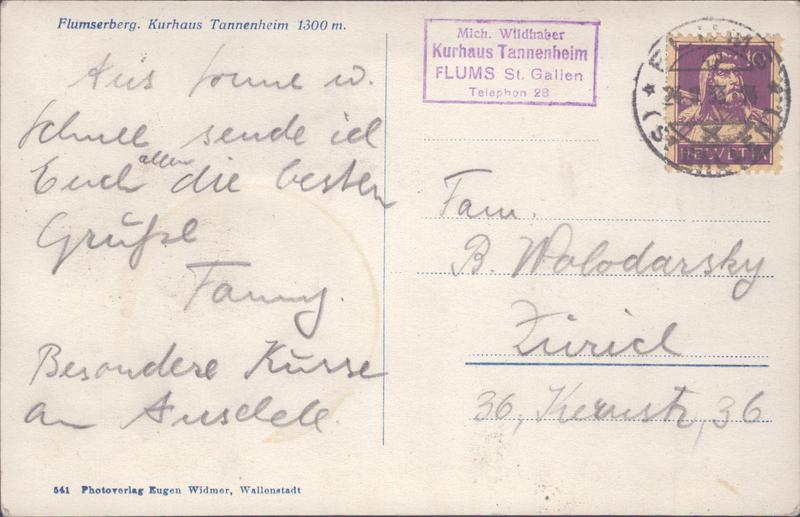 Flumserberg. Kurhaus Tannenheim 1300 m.
Mich. Wildhaber
Kurhaus Tannenheim
FLUMS St. Gallen
Telephon 28
HELVETIA
Aus Sonne u.
Schnee sende ich
Euch allen die besten
Grüße
Fanny.
Besondere Küsse
an
Fam.
B. Wolodarsky
Zürich
36, Kernstr, 36
541 Photoverlag Eugen Widmer, Wallenstadt